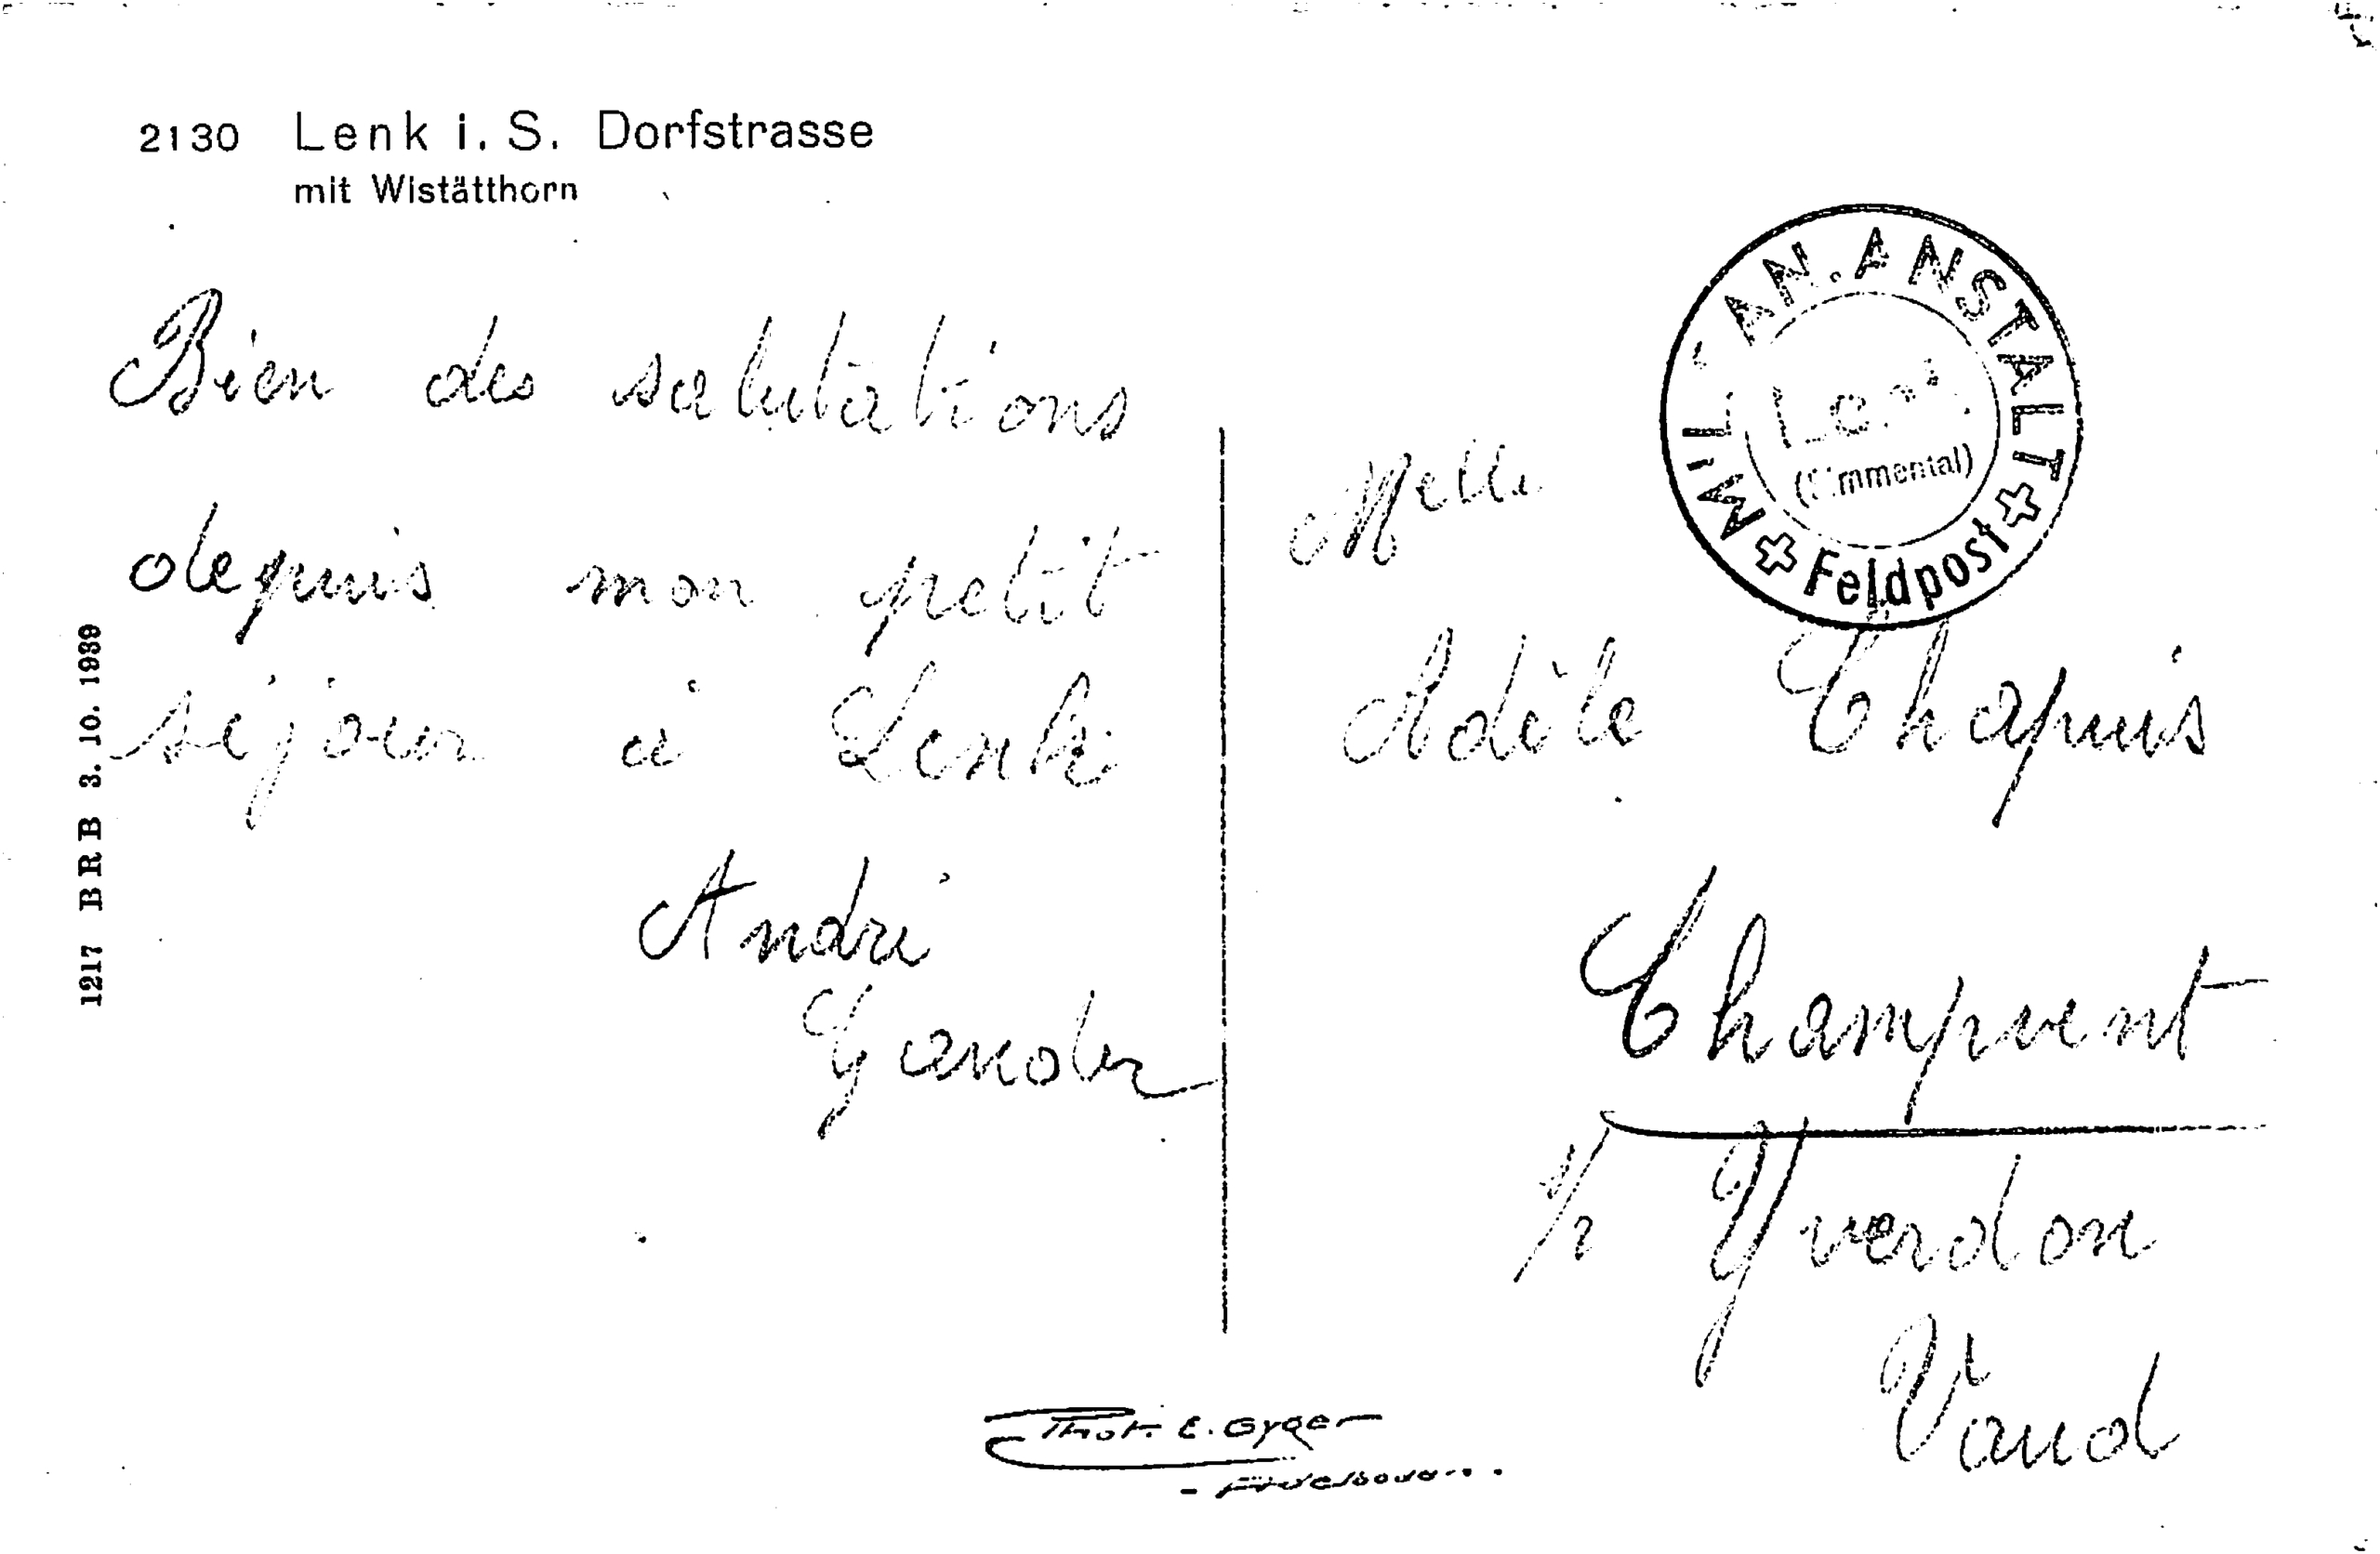 2130 Lenk i. S. Dorfstrasse
mit Wistätthorn
Bien des salutations
depuis mon petit
séjour à Lenk
André
Gander
1217 BRB 3. 10. 1939
MIL. SAN. ANSTALT
Lenk
(Simmental)
Feldpost
Melle
Adèle Chapuis
Champvent
s/ Yverdon
Vaud
Phot. E. Gyger
- Adelboden -